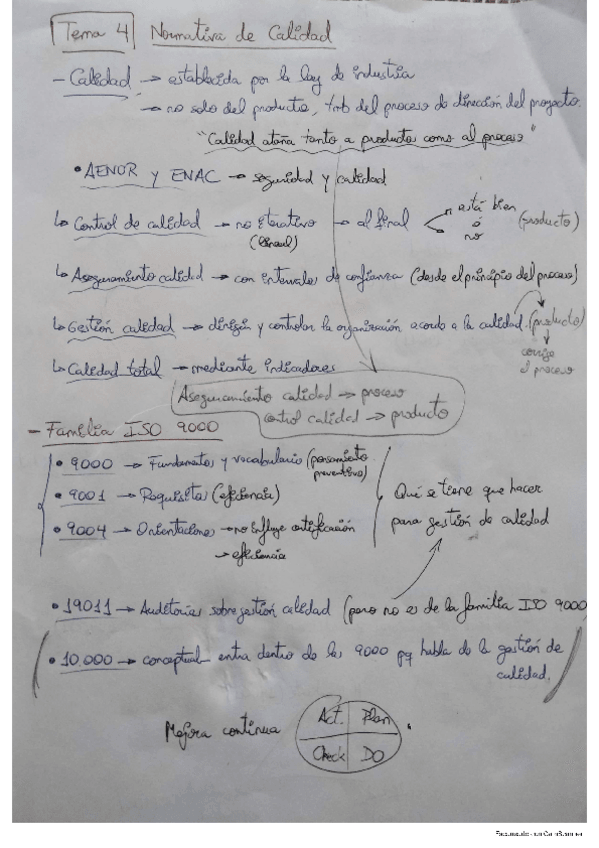 Tema 4 Normativa de Calidad
- Calidad → establecida por la ley de industria
→ no solo del producto, tmb del proceso de dirección del proyecto.
"Calidad atañe tanto a producto como al proceso"
• AENOR y ENAC → seguridad y calidad
↳ Control de calidad → no iterativo → al final está bien ó no (producto)
(lineal)
↳ Aseguramiento calidad → con intervalos de confianza (desde el principio del proceso)
↳ Gestión calidad → dirigir y controlar la organización acorde a la calidad. (producto)
↓ corrige el proceso
↳ Calidad total → mediante indicadores
Aseguramiento calidad → proceso
control calidad → producto
- Familia ISO 9000
• 9000 → Fundamentos y vocabulario (pensamiento preventivo)
• 9001 → Requisitos (eficiencia)
• 9004 → Orientaciones → no influye certificación
→ eficiencia
Qué se tiene que hacer
para gestión de calidad
• 19011 → Auditorías sobre gestión calidad (pero no es de la familia ISO 9000)
• 10.000 → conceptual entra dentro de las 9000 pq habla de la gestión de
calidad.
Mejora continua
Act. Plan
Check DO